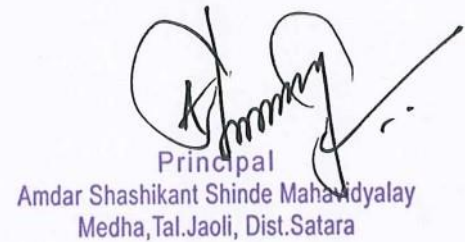 Principal
Amdar Shashikant Shinde Mahavidyalay
Medha,Tal.Jaoli, Dist.Satara